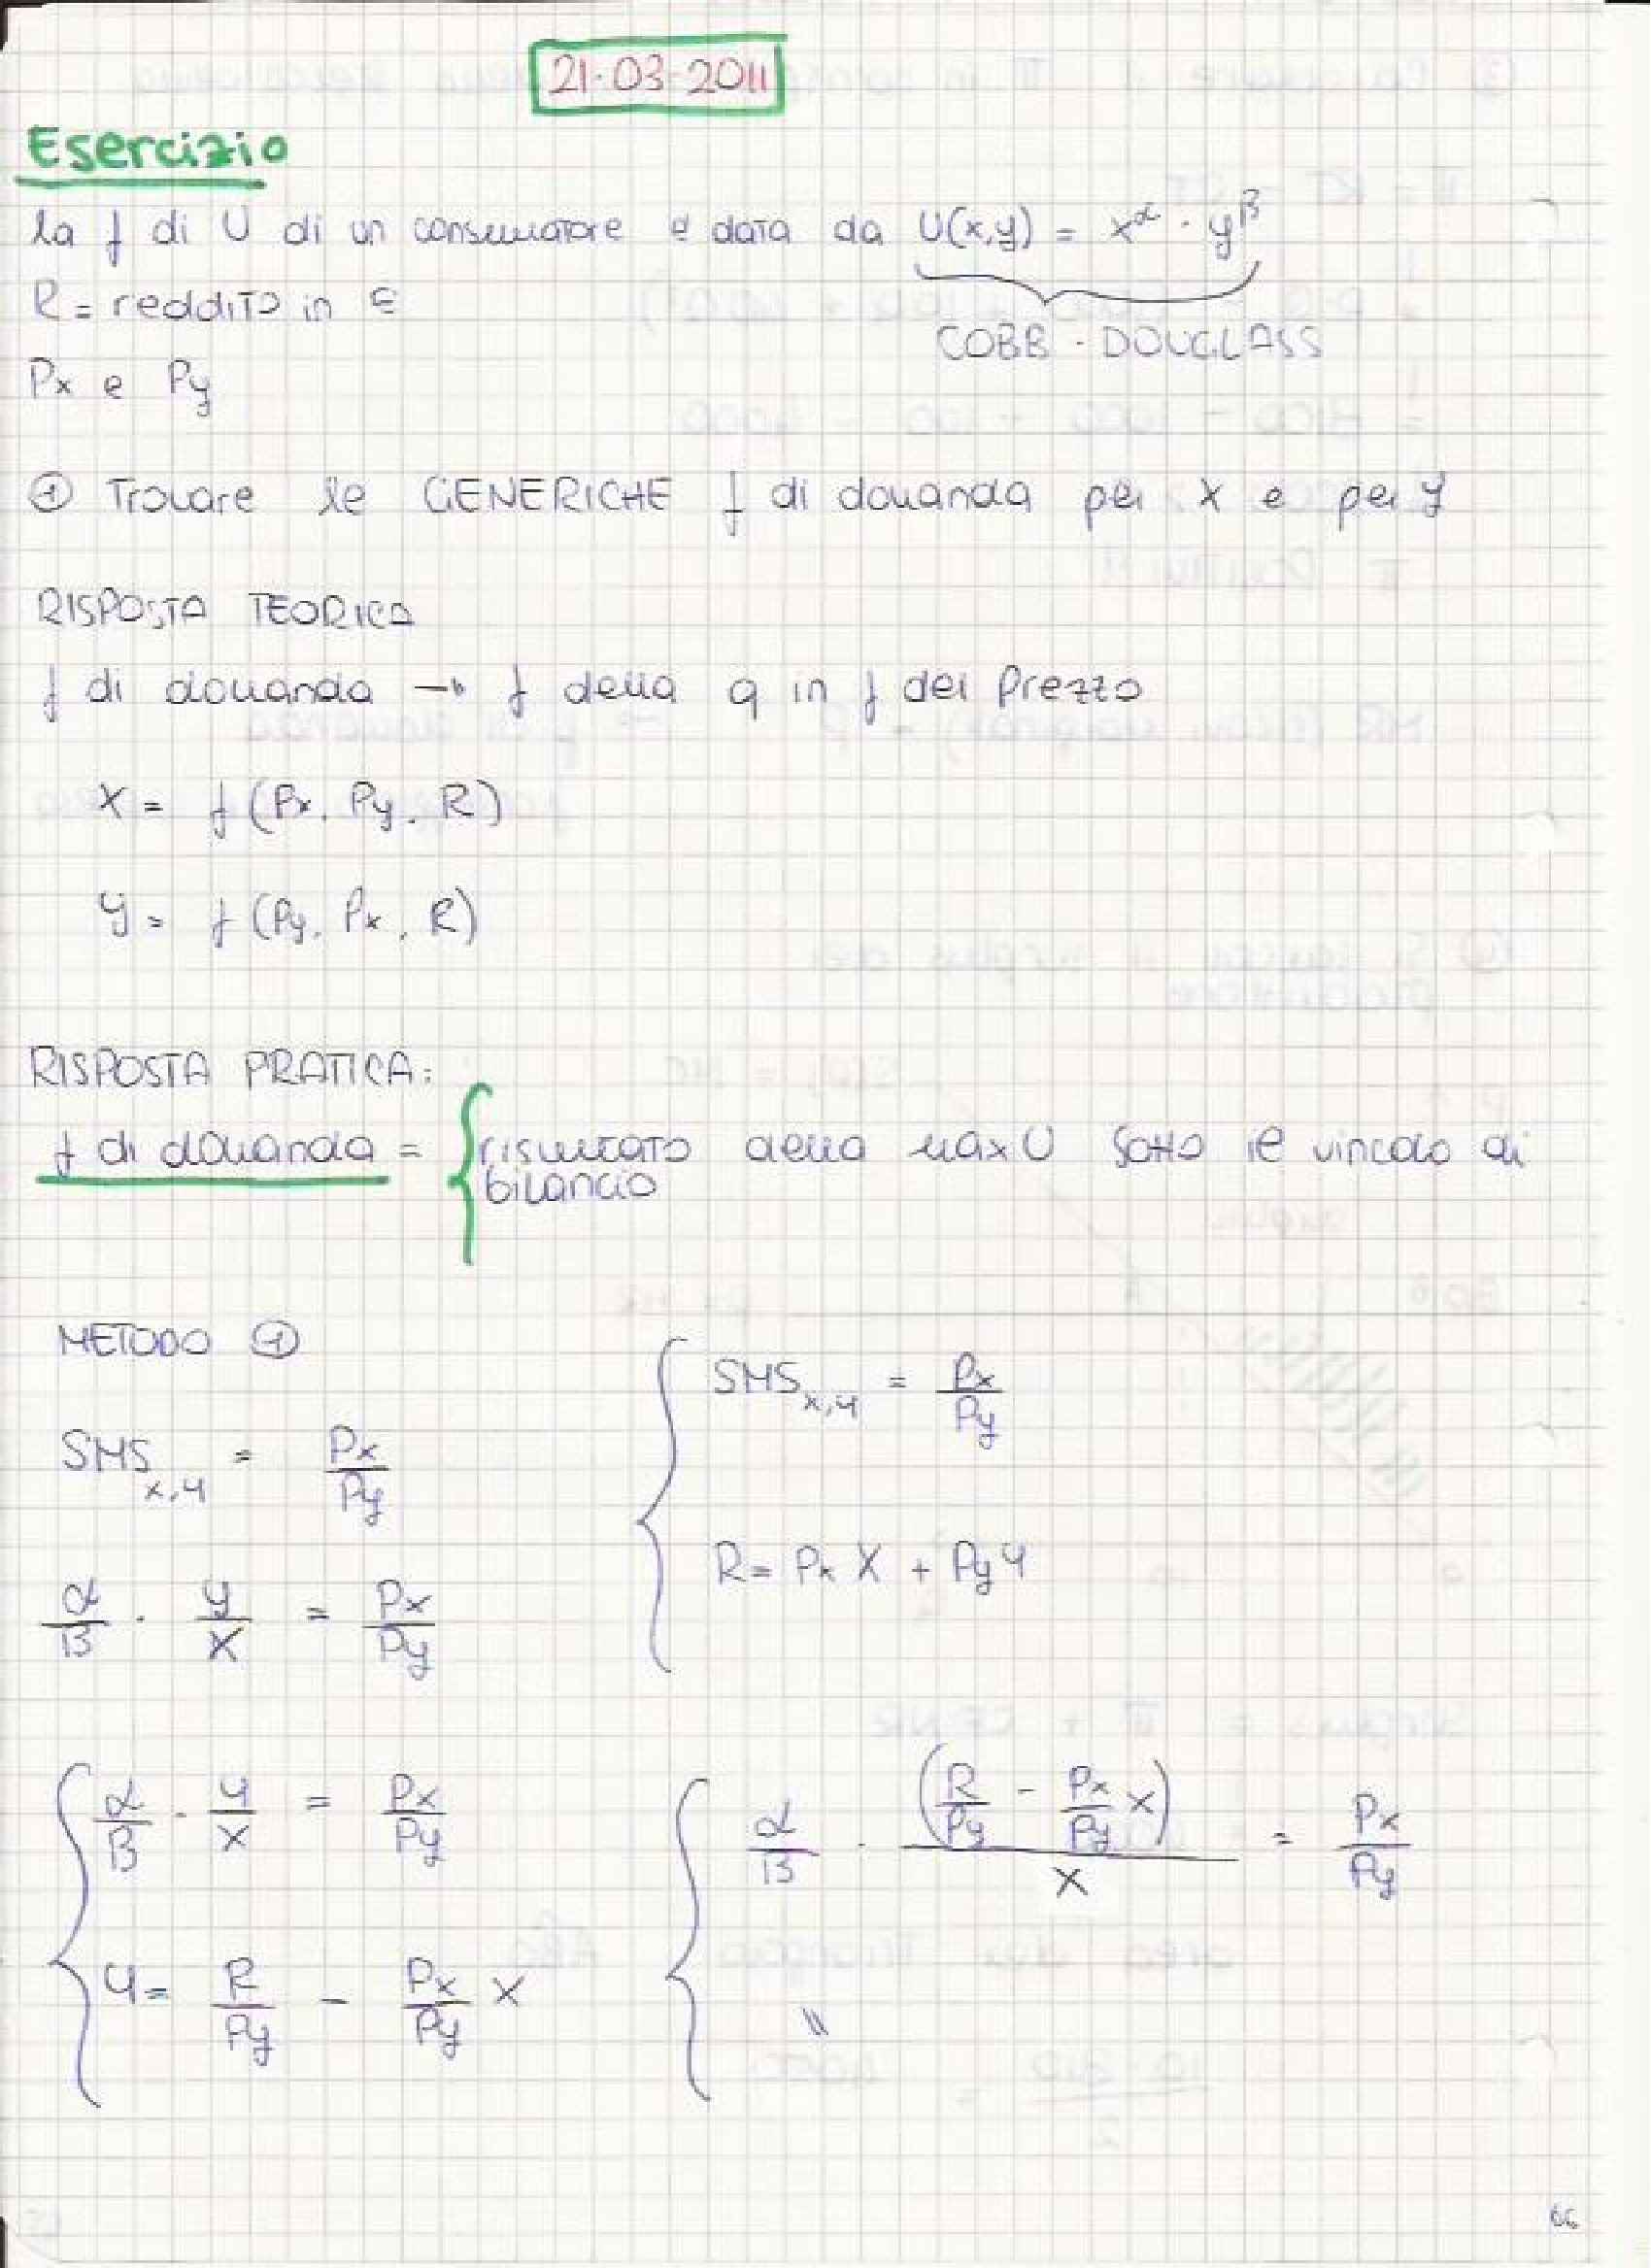 21-03-2011
Esercizio
la f di U di un consumatore è data da U(x,y) = x^α · y^β
COBB - DOUGLASS
R = reddito in €
Px e Py
① Trovare le GENERICHE f di domanda per x e per y
RISPOSTA TEORICA
f di domanda → f della q in f del prezzo
X = f (Px, Py, R)
y = f (Py, Px, R)
RISPOSTA PRATICA:
f di domanda = { risultato della max U sotto il vincolo di
bilancio
METODO ①
SMS x,y = Px/Py
α/β · y/x = Px/Py
{ SMS x,y = Px/Py
R = Px X + Py y
{ α/β · y/x = Px/Py
y = R/Py - Px/Py x
{ α/β · (R/Py - Px/Py x)/x = Px/Py
\\
66